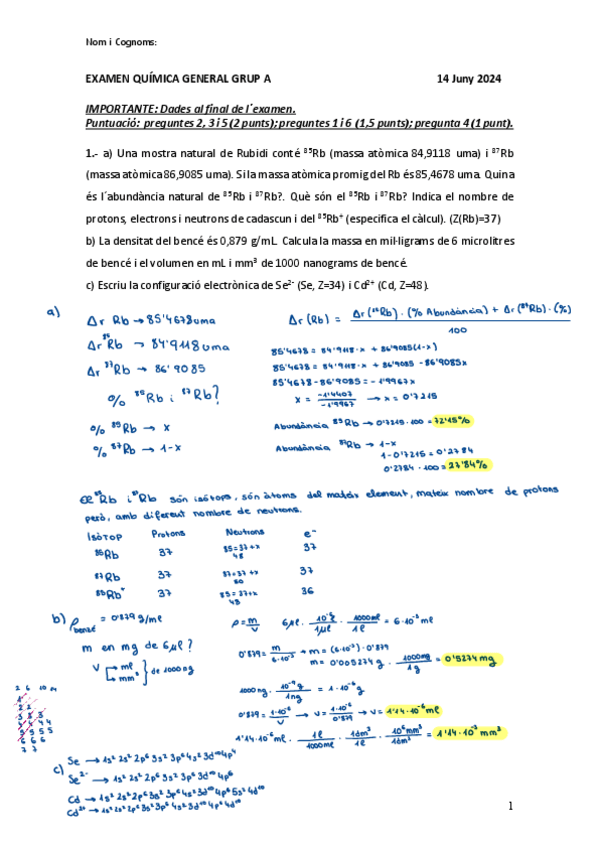 Nom i Cognoms:
EXAMEN QUÍMICA GENERAL GRUP A 14 Juny 2024
IMPORTANTE: Dades al final de l´examen.
Puntuació: preguntes 2, 3 i 5 (2 punts); preguntes 1 i 6 (1,5 punts); pregunta 4 (1 punt).
1.- a) Una mostra natural de Rubidi conté ⁸⁵Rb (massa atòmica 84,9118 uma) i ⁸⁷Rb
(massa atòmica 86,9085 uma). Si la massa atòmica promig del Rb és 85,4678 uma. Quina
és l´abundància natural de ⁸⁵Rb i ⁸⁷Rb?. Què són el ⁸⁵Rb i ⁸⁷Rb? Indica el nombre de
protons, electrons i neutrons de cadascun i del ⁸⁵Rb⁺ (especifica el càlcul). (Z(Rb)=37)
b) La densitat del bencé és 0,879 g/mL. Calcula la massa en mil·ligrams de 6 microlitres
de bencé i el volumen en mL i mm³ de 1000 nanograms de bencé.
c) Escriu la configuració electrònica de Se²⁻ (Se, Z=34) i Cd²⁺ (Cd, Z=48).
a) Ar Rb → 85'4678 uma
Ar (Rb) = Ar (⁸⁵Rb) · (% Abundància) + Ar (⁸⁷Rb) · (%) / 100
Ar ⁸⁵Rb → 84'9118 uma
85'4678 = 84'9118 · x + 86'9085 (1-x)
Ar ⁸⁷Rb → 86'9085
85'4678 = 84'9118 · x + 86'9085 - 86'9085x
85'4678 - 86'9085 = -1'9967x
% ⁸⁵Rb i ⁸⁷Rb?
x = -1'4407 / -1'9967 → x = 0'7215
% ⁸⁵Rb → x
Abundància ⁸⁵Rb → 0'7215 · 100 = 72'15%
% ⁸⁷Rb → 1-x
Abundància ⁸⁷Rb → 1-x
1-0'7215 = 0'2784
0'2784 · 100 = 27'84%
⁸⁵Rb i ⁸⁷Rb són isòtops, són àtoms del mateix element, mateix nombre de protons
però, amb diferent nombre de neutrons.
Isòtop Protons Neutrons e⁻
⁸⁵Rb 37 85=37+x 48 37
⁸⁷Rb 37 87=37+x 50 37
⁸⁵Rb⁺ 37 85=37+x 48 36
b) ρ bencé = 0'879 g/ml
ρ = m/v
6μl · 10⁻⁶l / 1μl · 1000ml / 1l = 6·10⁻³ ml
m en mg de 6μl?
0'879 = m / 6·10⁻³ → m = (6·10⁻³) · 0'879
m = 0'005274 g · 1000mg / 1g = 0'5274 mg
V → ml → mm³ } de 1000 ng
1000 ng · 10⁻⁹g / 1ng = 1·10⁻⁶ g
0'879 = 1·10⁻⁶ / V → V = 1·10⁻⁶ / 0'879 → V = 1'14·10⁻⁶ ml
1'14·10⁻⁶ ml · 1l / 1000ml · 1dm³ / 1l · 10⁶mm³ / 1dm³ = 1'14·10⁻³ mm³
2 6 10 14
1
2 2
3 3 3
4 4 4 4
5 5 5 5
6 6 6
7 7
c) Se → 1s² 2s² 2p⁶ 3s² 3p⁶ 4s² 3d¹⁰ 4p⁴
Se²⁻ → 1s² 2s² 2p⁶ 3s² 3p⁶ 3d¹⁰ 4p⁶
Cd → 1s² 2s² 2p⁶ 3s² 3p⁶ 4s² 3d¹⁰ 4p⁶ 5s² 4d¹⁰
Cd²⁺ → 1s² 2s² 2p⁶ 3s² 3p⁶ 4s² 3d¹⁰ 4p⁶ 4d¹⁰
1